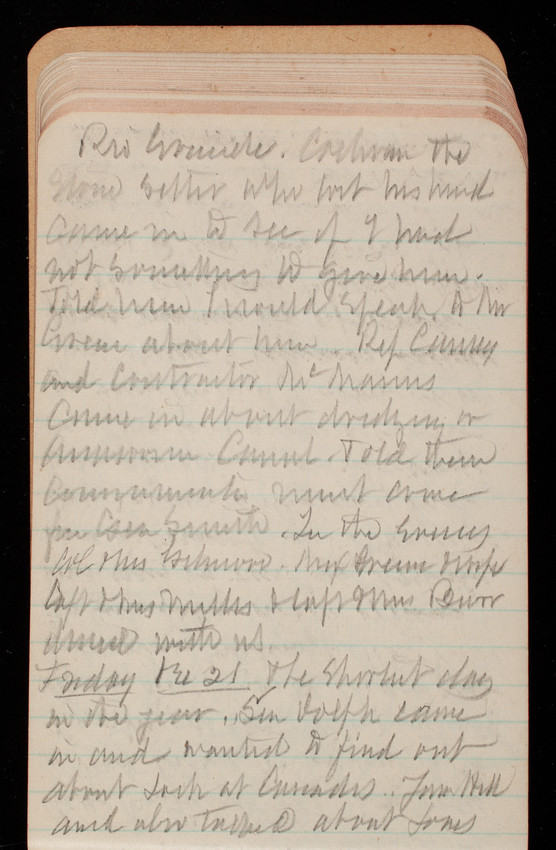 Rio Grande. Cochran the
stone setter who lost his hand
came in to see if I had
not something to give him.
Told him I would speak to Mr
Green about him. Rep Caruey
and Contractor McManus
came in about dredging or
Canal. Told them
must come
Gen Smith. In the evening
Col & Mrs Gilmore. Maj Green & wife
Capt & Mrs & Capt & Mrs Burr
dined with us.
Friday Dec 21 The Shortest day
in the year. Sen Dolph came
in and wanted to find out
about Lock at Cascades. Tom Hill
and also talked about Jones